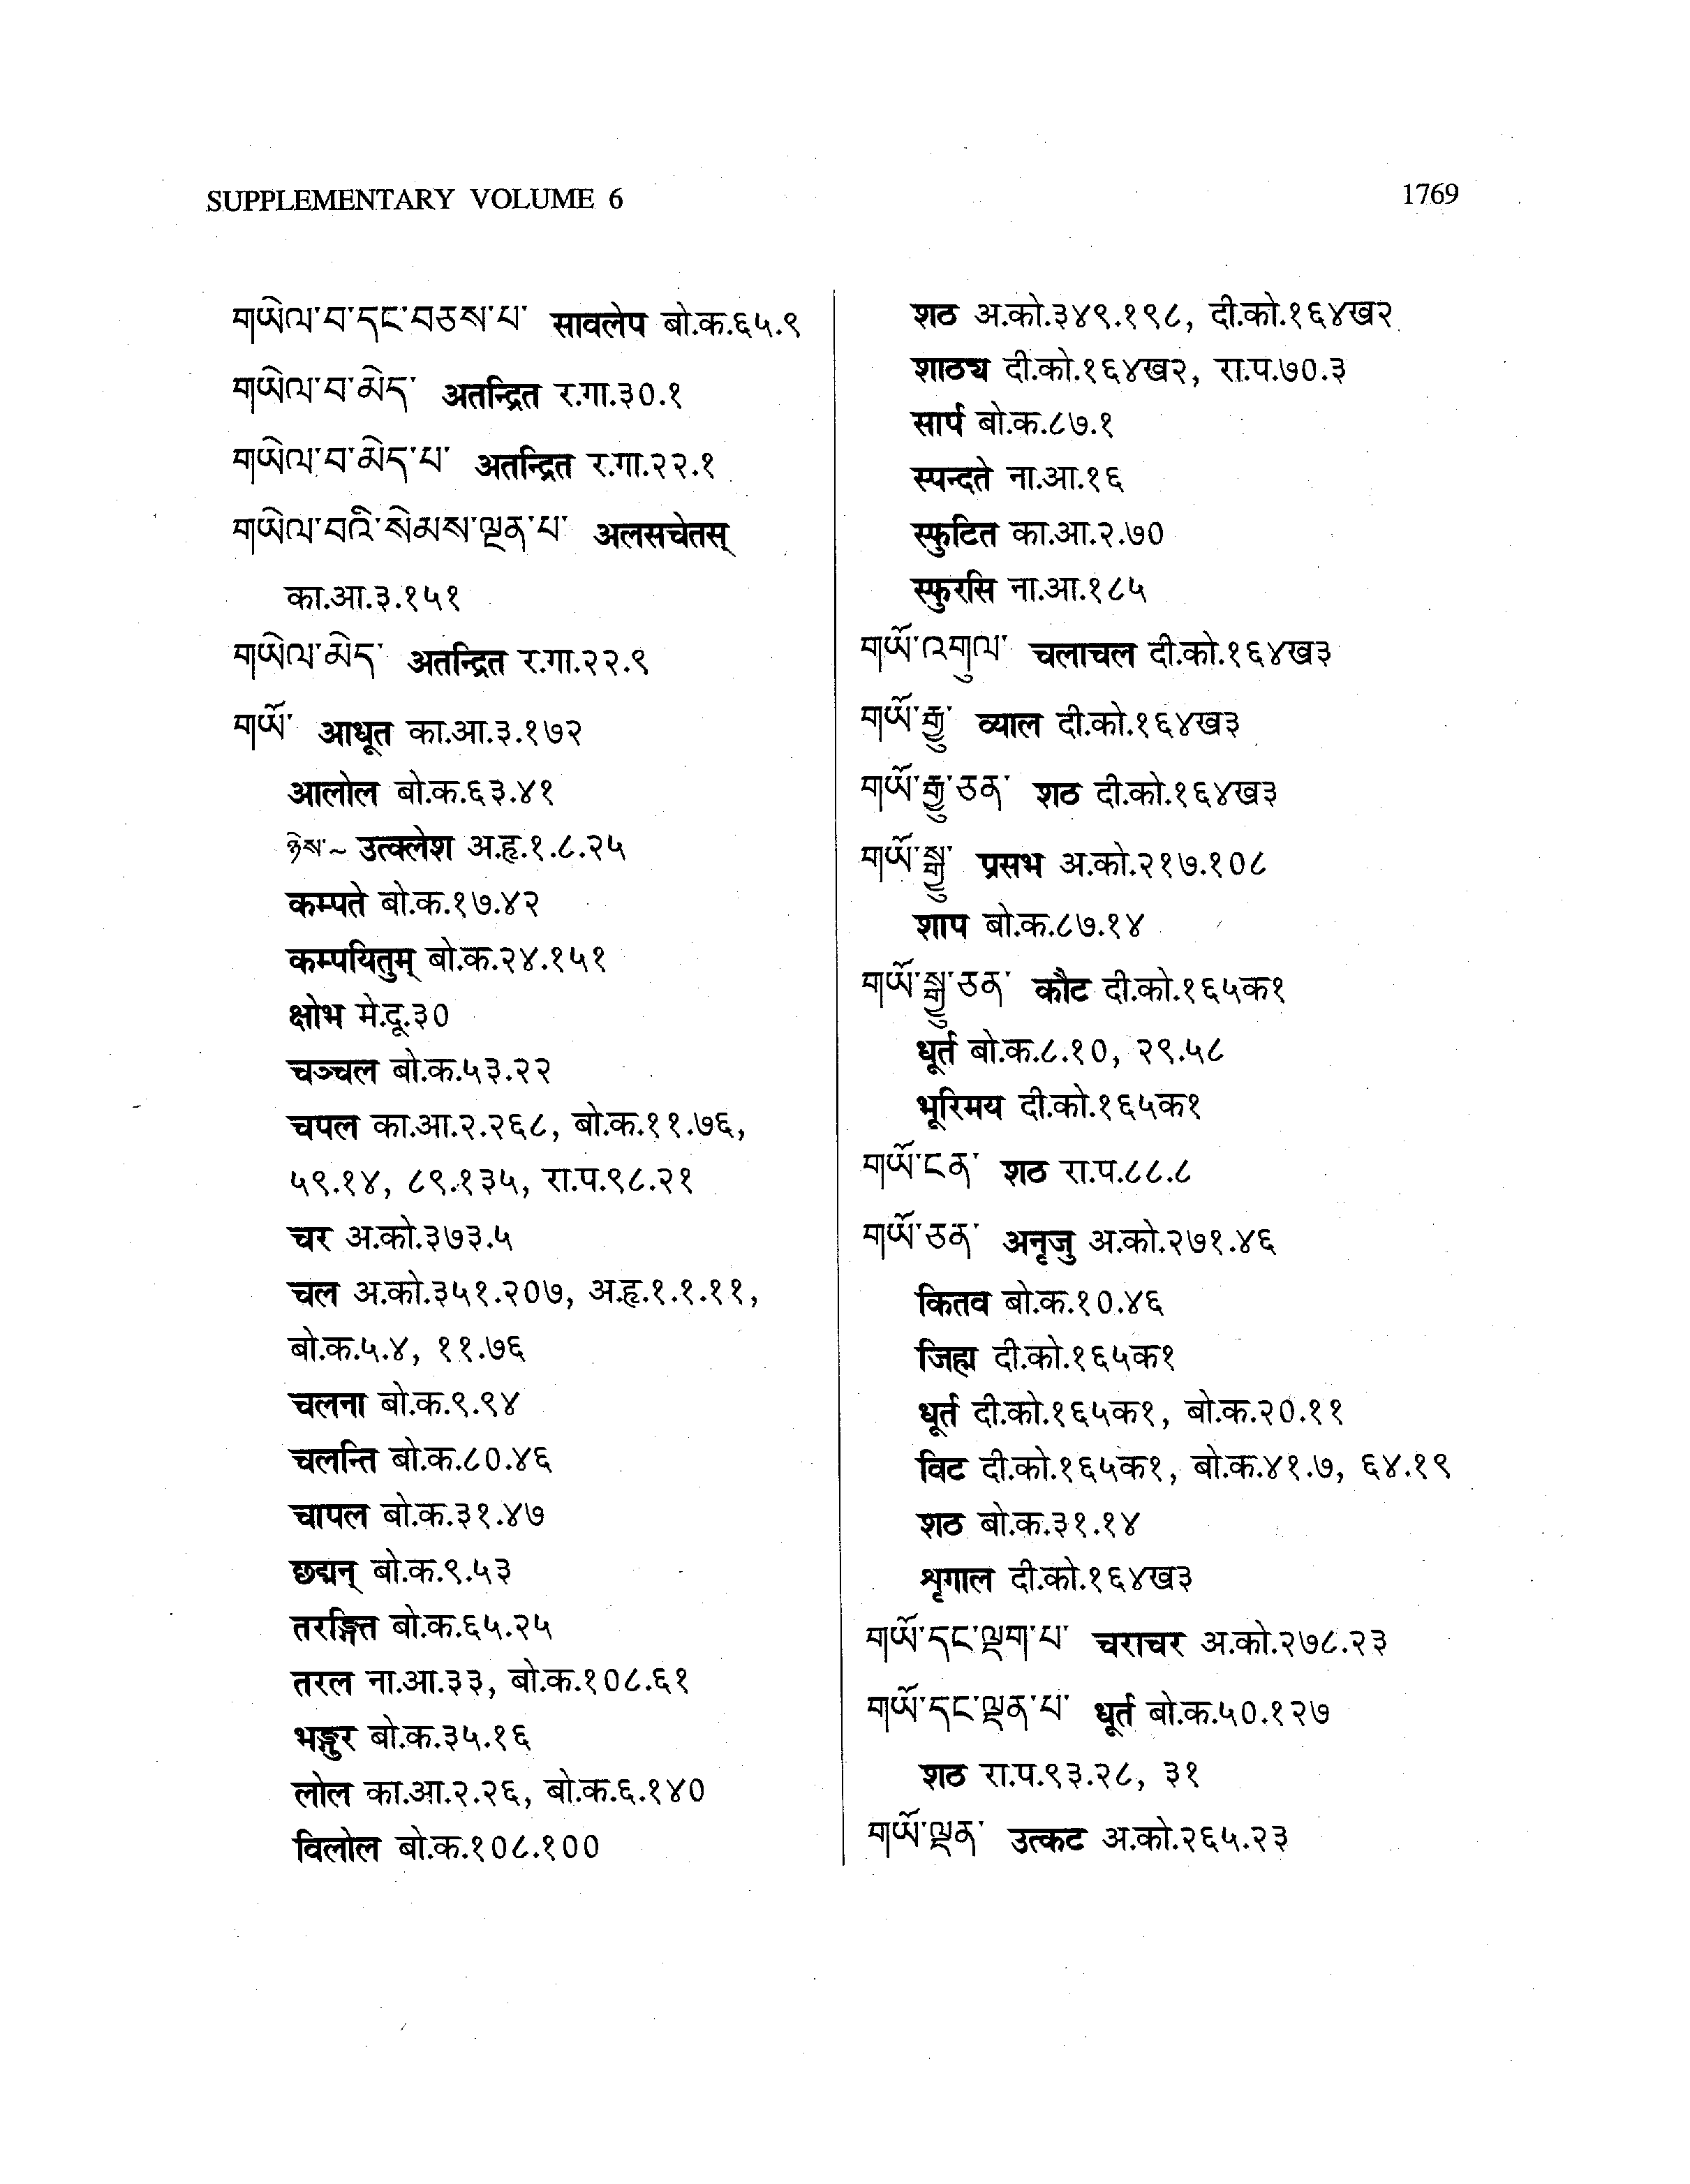 SUPPLEMENTARY VOLUME 6
1769
གཡེལ་བ་དང་བཅས་པ་ सावलेप बो.क.६५.९
གཡེལ་བ་མེད་ अतन्द्रित र.गा.३०.१
གཡེལ་བ་མེད་པ་ अतन्द्रित र.गा.२२.१
གཡེལ་བའི་སེམས་ལྡན་པ་ अलसचेतस्
का.आ.३.१५१
གཡེལ་མེད་ अतन्द्रित र.गा.२२.९
གཡོ་ आधूत का.आ.३.१७२
आलोल बो.क.६३.४१
ཉེས་~ उत्क्लेश अ.हृ.१.८.२५
कम्पते बो.क.१७.४२
कम्पयितुम् बो.क.२४.१५१
क्षोभ मे.दू.३०
चञ्चल बो.क.५३.२२
चपल का.आ.२.२६८, बो.क.११.७६,
५९.१४, ८९.१३५, रा.प.९८.२१
चर अ.को.३७३.५
चल अ.को.३५१.२०७, अ.हृ.१.१.११,
बो.क.५.४, ११.७६
चलना बो.क.९.९४
चलन्ति बो.क.८०.४६
चापल बो.क.३१.४७
छद्मन् बो.क.९.५३
तरङ्गित बो.क.६५.२५
तरल ना.आ.३३, बो.क.१०८.६१
भङ्गुर बो.क.३५.१६
लोल का.आ.२.२६, बो.क.६.१४०
विलोल बो.क.१०८.१००
शठ अ.को.३४९.१९८, दी.को.१६४ख२
शाठ्य दी.को.१६४ख२, रा.प.७०.३
सार्प बो.क.८७.१
स्पन्दते ना.आ.१६
स्फुटित का.आ.२.७०
स्फुरसि ना.आ.१८५
གཡོ་འགུལ་ चलाचल दी.को.१६४ख३
གཡོ་རྒྱུ་ व्याल दी.को.१६४ख३
གཡོ་རྒྱུ་ཅན་ शठ दी.को.१६४ख३
གཡོ་སྒྱུ་ प्रसभ अ.को.२१७.१०८
शाप बो.क.८७.१४
གཡོ་སྒྱུ་ཅན་ कौट दी.को.१६५क१
धूर्त बो.क.८.१०, २९.५८
भूरिमय दी.को.१६५क१
གཡོ་ངན་ शठ रा.प.८८.८
གཡོ་ཅན་ अनृजु अ.को.२७१.४६
कितव बो.क.१०.४६
जिह्म दी.को.१६५क१
धूर्त दी.को.१६५क१, बो.क.२०.११
विट दी.को.१६५क१, बो.क.४१.७, ६४.१९
शठ बो.क.३१.१४
शृगाल दी.को.१६४ख३
གཡོ་དང་ལྡག་པ་ चराचर अ.को.२७८.२३
གཡོ་དང་ལྡན་པ་ धूर्त बो.क.५०.१२७
शठ रा.प.९३.२८, ३१
གཡོ་ལྡན་ उत्कट अ.को.२६५.२३